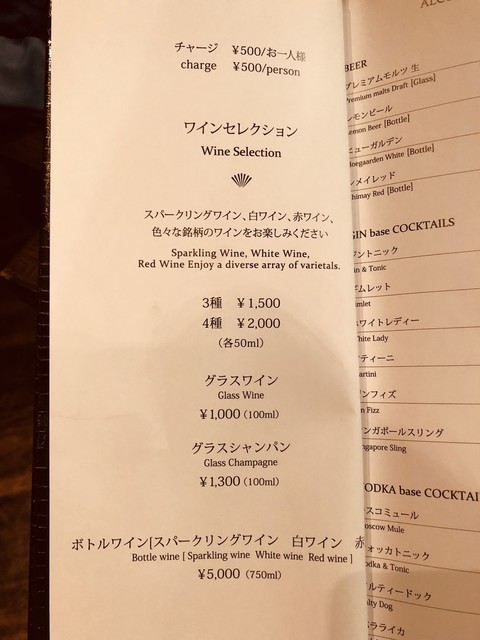 チャージ ￥500/お一人様
charge ￥500/person
ワインセレクション
Wine Selection
スパークリングワイン、白ワイン、赤ワイン、
色々な銘柄のワインをお楽しみください
Sparkling Wine, White Wine,
Red Wine Enjoy a diverse array of varietals.
3種 ￥1,500
4種 ￥2,000
（各50ml）
グラスワイン
Glass Wine
￥1,000（100ml）
グラスシャンパン
Glass Champagne
￥1,300（100ml）
ボトルワイン[スパークリングワイン 白ワイン 赤
Bottle wine [ Sparkling wine White wine Red wine ]
￥5,000（750ml）
BEER
プレミアムモルツ 生
Premium malts Draft [Glass]
モンビール
emon Beer [Bottle]
ューガルデン
oegaarden White [Bottle]
メイレッド
himay Red [Bottle]
GIN base COCKTAILS
ントニック
in & Tonic
ムレット
imlet
ワイトレディー
hite Lady
ティーニ
artini
ンフィズ
n Fizz
ンガポールスリング
ngapore Sling
VODKA base COCKTAI
スコミュール
oscow Mule
ォッカトニック
odka & Tonic
ルティードック
alty Dog
ララライカ